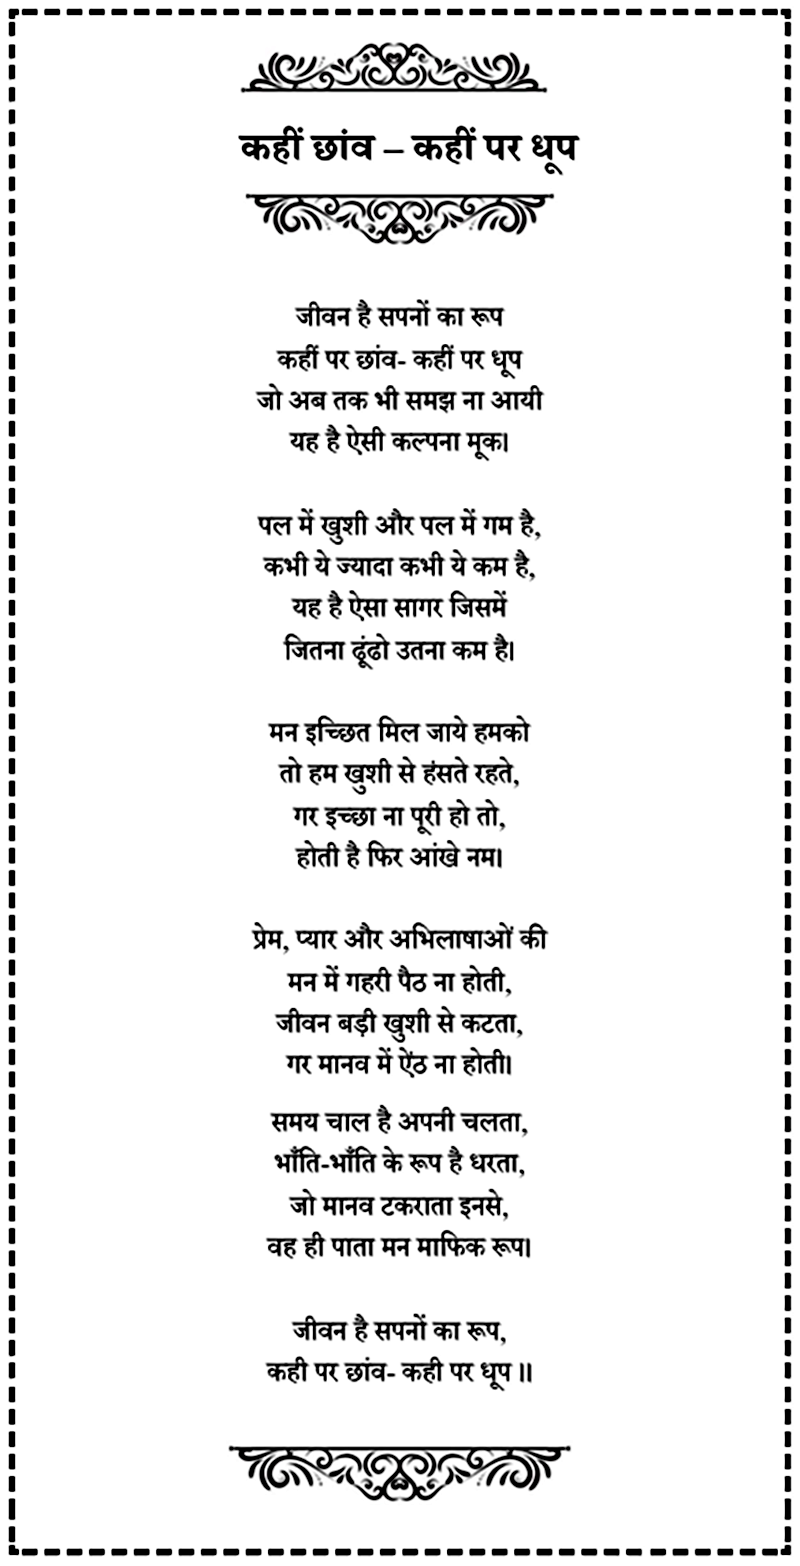 कहीं छांव – कहीं पर धूप
जीवन है सपनों का रूप
कहीं पर छांव- कहीं पर धूप
जो अब तक भी समझ ना आयी
यह है ऐसी कल्पना मूक।
पल में खुशी और पल में गम है,
कभी ये ज्यादा कभी ये कम है,
यह है ऐसा सागर जिसमें
जितना ढूंढो उतना कम है।
मन इच्छित मिल जाये हमको
तो हम खुशी से हंसते रहते,
गर इच्छा ना पूरी हो तो,
होती है फिर आंखे नम।
प्रेम, प्यार और अभिलाषाओं की
मन में गहरी पैठ ना होती,
जीवन बड़ी खुशी से कटता,
गर मानव में ऐंठ ना होती।
समय चाल है अपनी चलता,
भाँति-भाँति के रूप है धरता,
जो मानव टकराता इनसे,
वह ही पाता मन माफिक रूप।
जीवन है सपनों का रूप,
कही पर छांव- कही पर धूप ॥